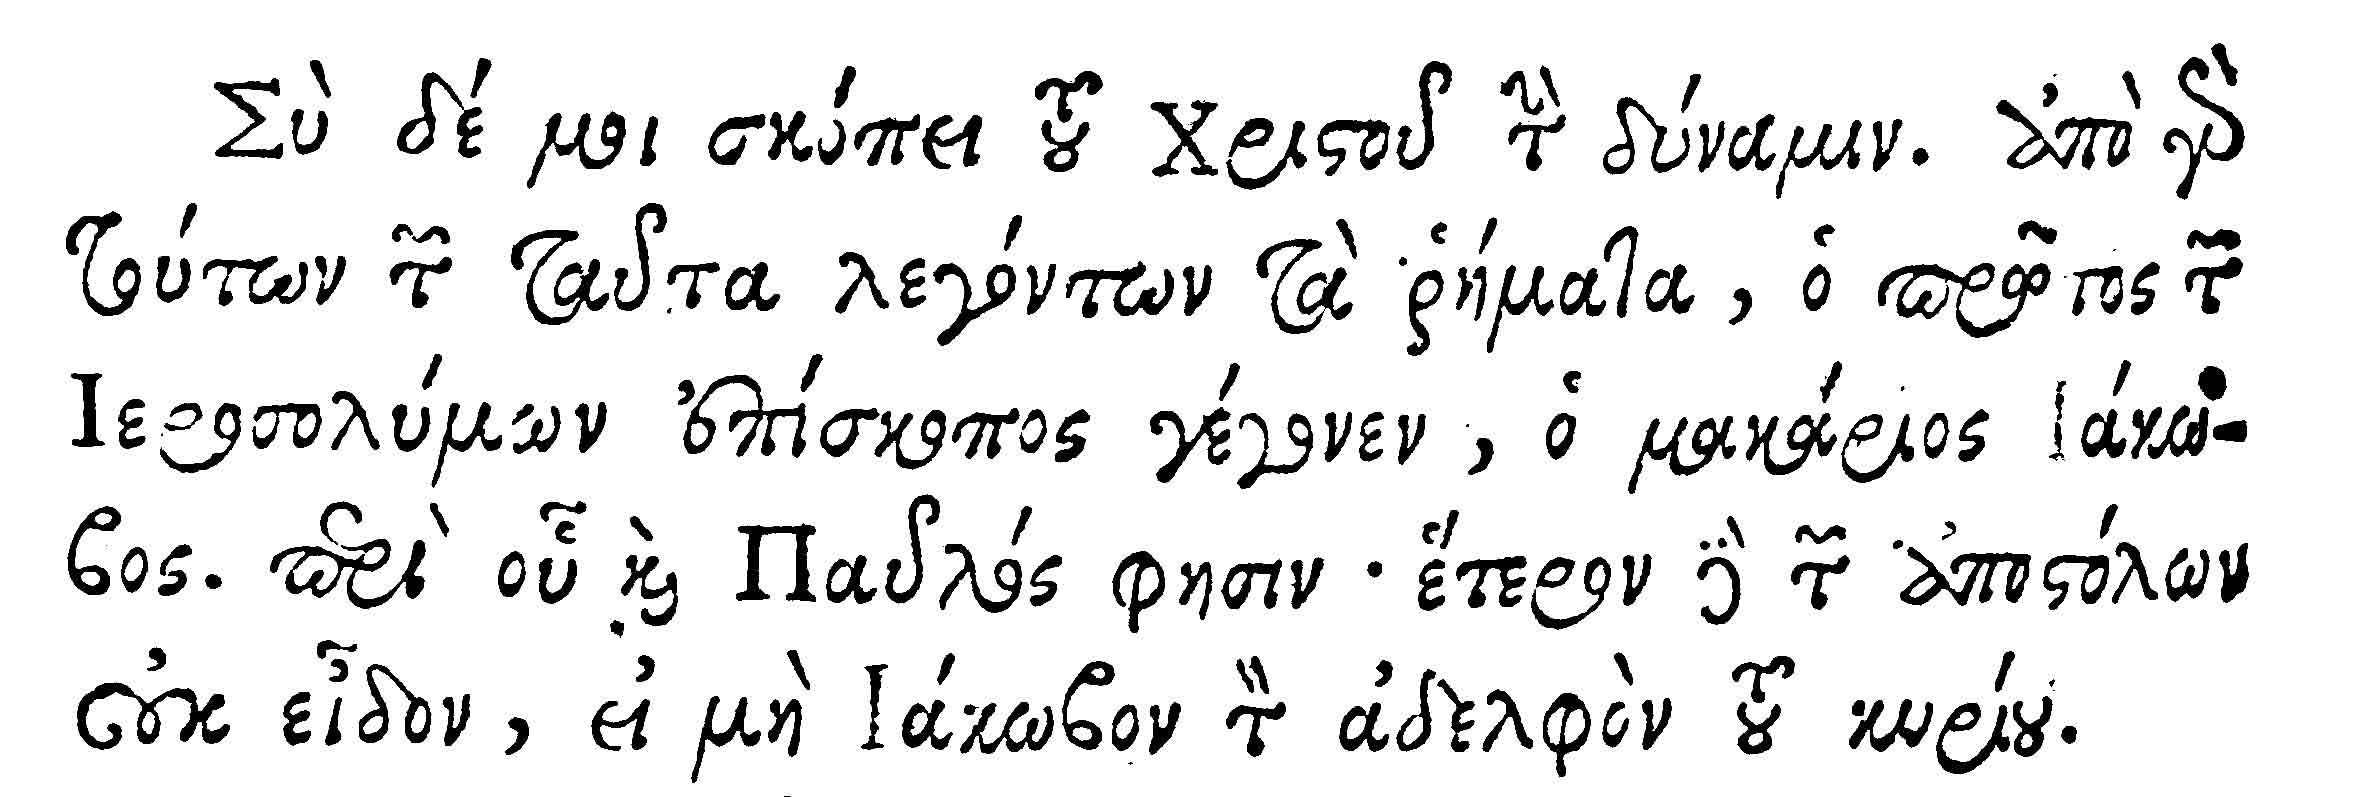 Σὺ δέ μοι σκόπει τοῦ Χριστοῦ τὴν δύναμιν. ἀπὸ γὰρ
τούτων τῶν ταῦτα λεγόντων τὰ ῥήματα, ὁ πρῶτος τῶν
Ιεροσολύμων ἐπίσκοπος γέγονεν, ὁ μακάριος Ιάκω-
βος. περὶ οὗ καὶ Παυλός φησιν· ἕτερον δὲ τῶν ἀποστόλων
οὐκ εἶδον, εἰ μὴ Ιάκωβον τὸν ἀδελφὸν τοῦ κυρίου.